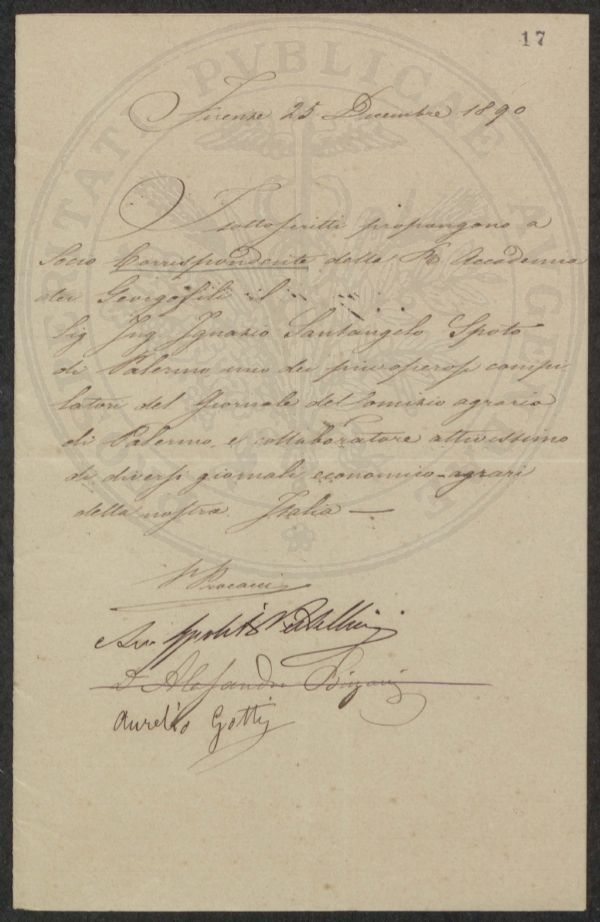 17
Firenze 25 Decembre 1890
I sottoscritti propongono a
Socio Corrispondente della R Accademia
dei Georgofili il
Sig Ing Ignazio Santangelo Spoto
di Palermo uno dei più operosi compi
latori del Giornale del Comizio agrario
di Palermo, e collaboratore attivissimo
di diversi giornali economico-agrari
della nostra Italia —
Aurelio Gotti
PROSPERITATI PVBLICAE AVGENDAE